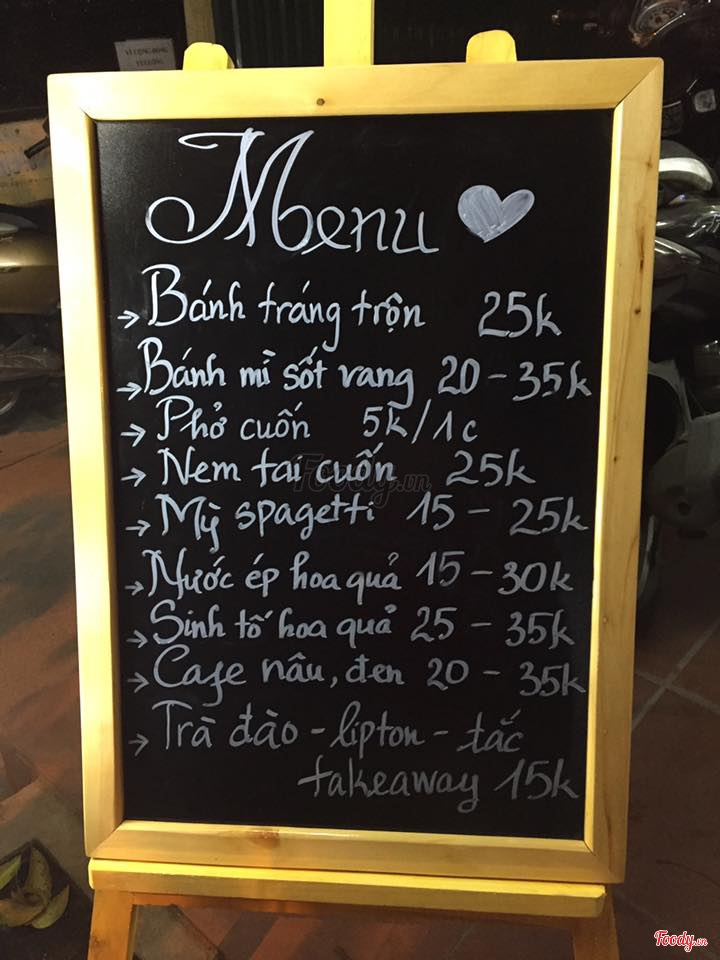 VÌ CỘNG ĐỒNG
Menu
→ Bánh tráng trộn 25k
→ Bánh mì sốt vang 20 - 35k
→ Phở cuốn 5k/1c
→ Nem tai cuốn 25k
Foody.vn
→ Mỳ spagetti 15 - 25k
→ Nước ép hoa quả 15 - 30k
→ Sinh tố hoa quả 25 - 35k
→ Cafe nâu, đen 20 - 35k
→ Trà đào - lipton - tắc
takeaway 15k
Foody.vn